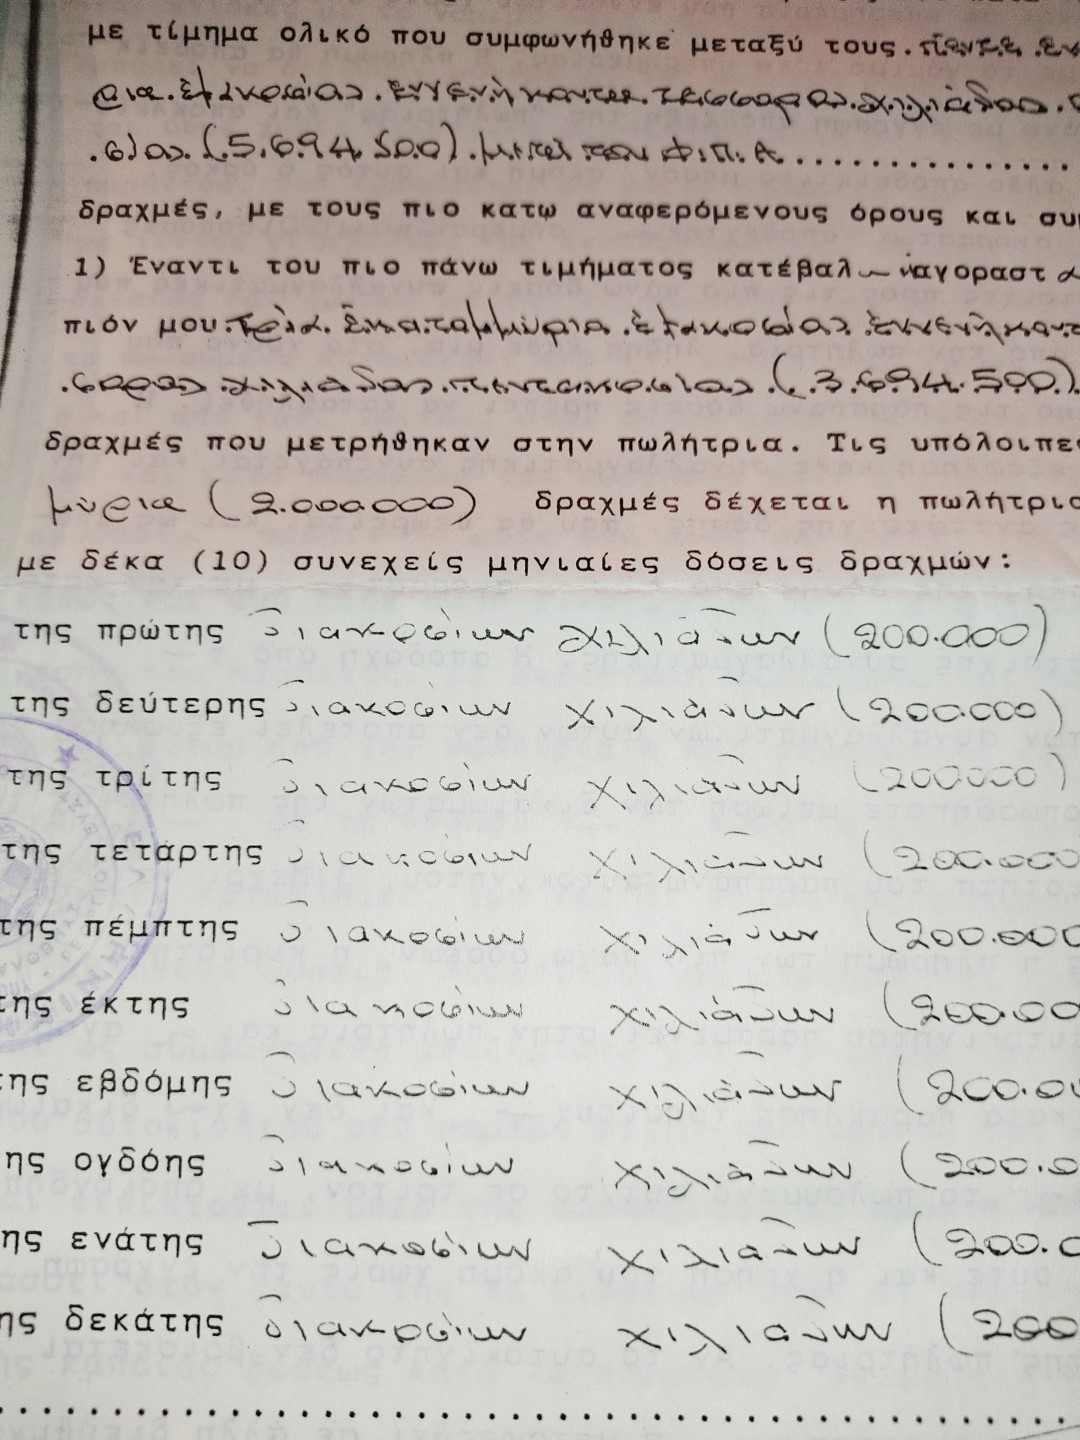 με τίμημα ολικό που συμφωνήθηκε μεταξύ τους. πέντε εκ
ρια εξακοσίας εννενήκοντα τέσσαρας χιλιάδας
σίας (5.694.500) μετά του Φ.Π.Α.
δραχμές, με τους πιο κατω αναφερόμενους όρους και συμ
1) Έναντι του πιο πάνω τιμήματος κατέβαλ αγοραστ
πιόν μου τρία εκατομμύρια εξακοσίας εννενήκοντ
σαρας χιλιάδας πεντακοσίας (3.694.500).
δραχμές που μετρήθηκαν στην πωλήτρια. Τις υπόλοιπες
μύρια (2.000.000) δραχμές δέχεται η πωλήτρια
με δέκα (10) συνεχείς μηνιαίες δόσεις δραχμών:
της πρώτης διακοσίων χιλιάδων (200.000)
της δεύτερης διακοσίων χιλιάδων (200.000)
της τρίτης διακοσίων χιλιάδων (200000)
της τετάρτης διακοσίων χιλιάδων (200.000
της πέμπτης διακοσίων χιλιάδων (200.000
της έκτης διακοσίων χιλιάδων (200.00
της εβδόμης διακοσίων χιλιάδων (200.00
ης ογδόης διακοσίων χιλιάδων (200.0
ης ενάτης διακοσίων χιλιάδων (200.0
ης δεκάτης διακοσίων χιλιάδων (200